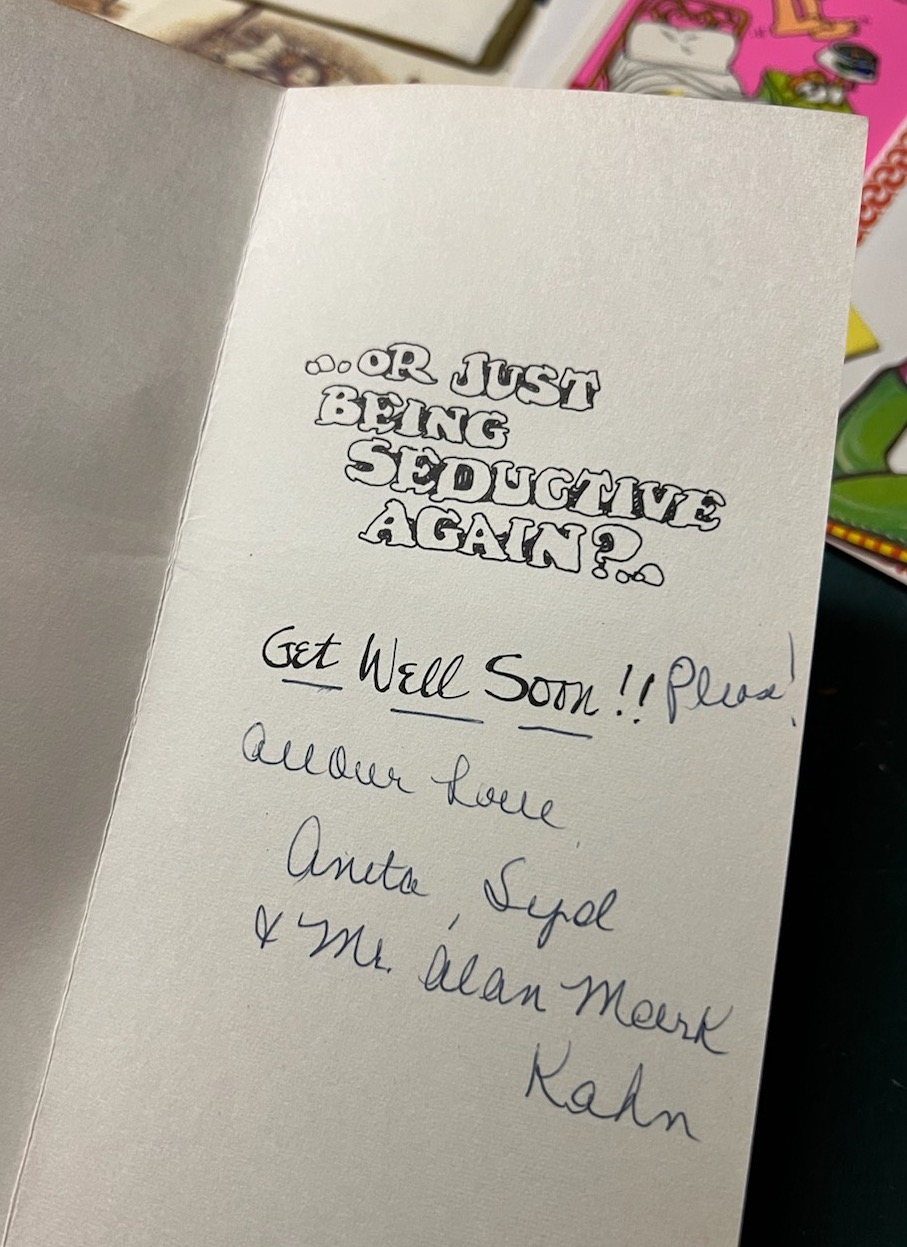 ...OR JUST
BEING
SEDUCTIVE
AGAIN?..
Get Well Soon!! Please!
All Our Love
Anita, Syd
& Mr. Alan Mark
Kahn